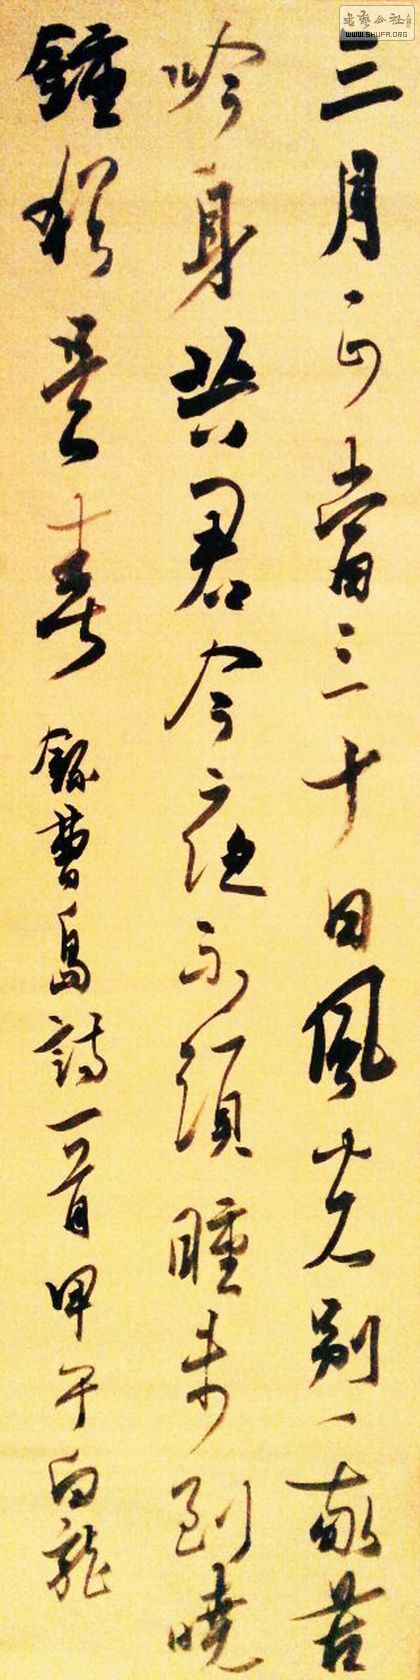 三月正當三十日風光別我苦
吟身共君今夜不須睡未到曉
鐘猶是春
錄曹島詩一首甲午白龍
书艺公社
WWW.SHUFA.ORG